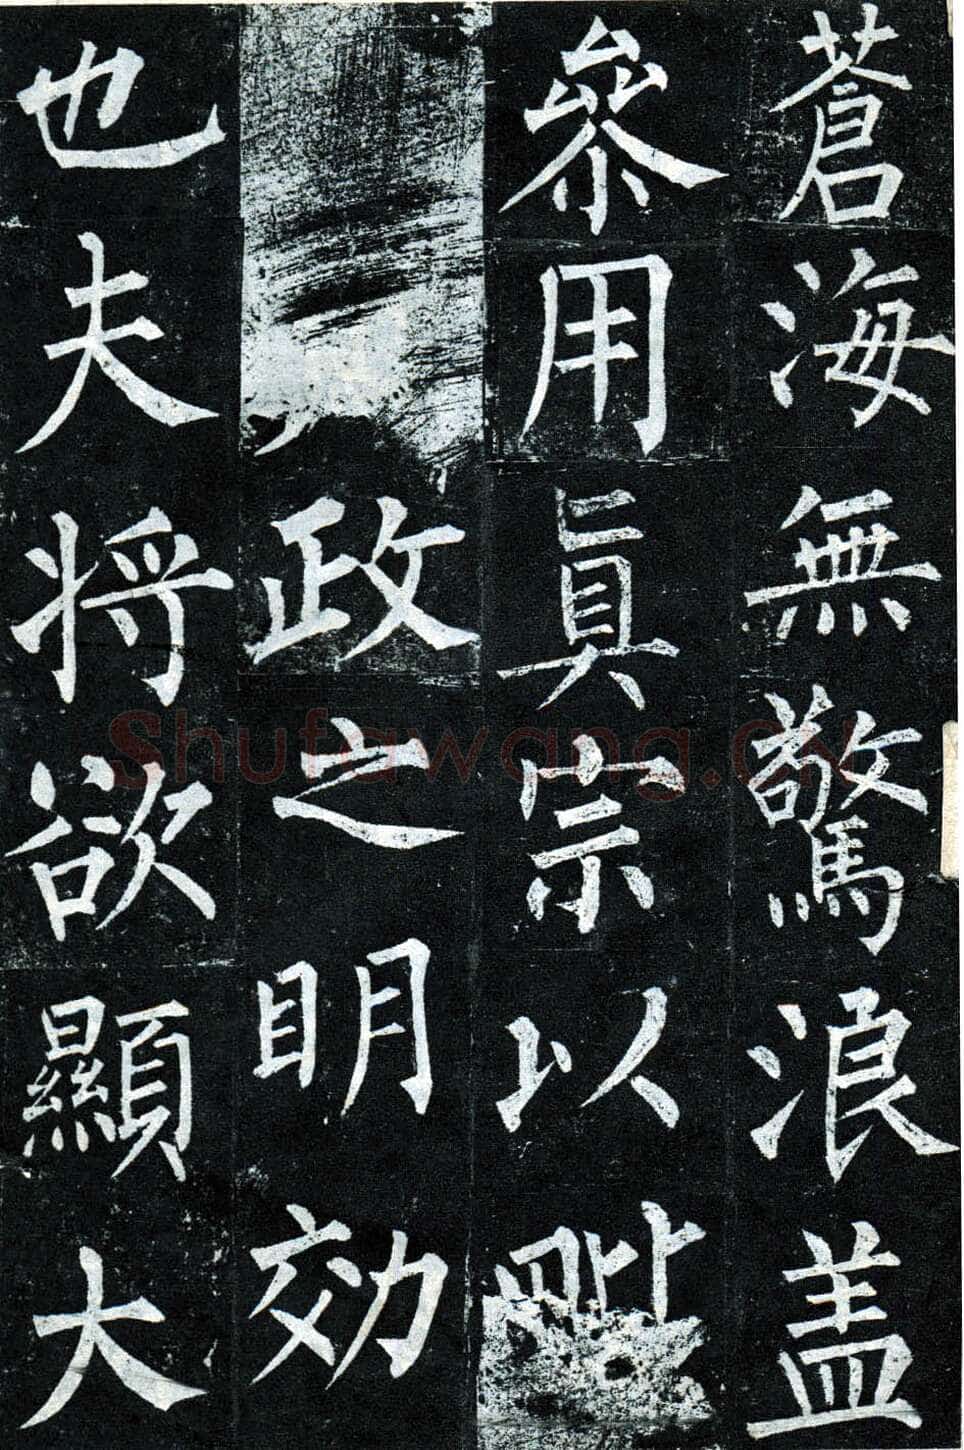 蒼海無驚浪盖
叅用眞宗以
政之明効
也夫将欲顯大
Shufawang.CN